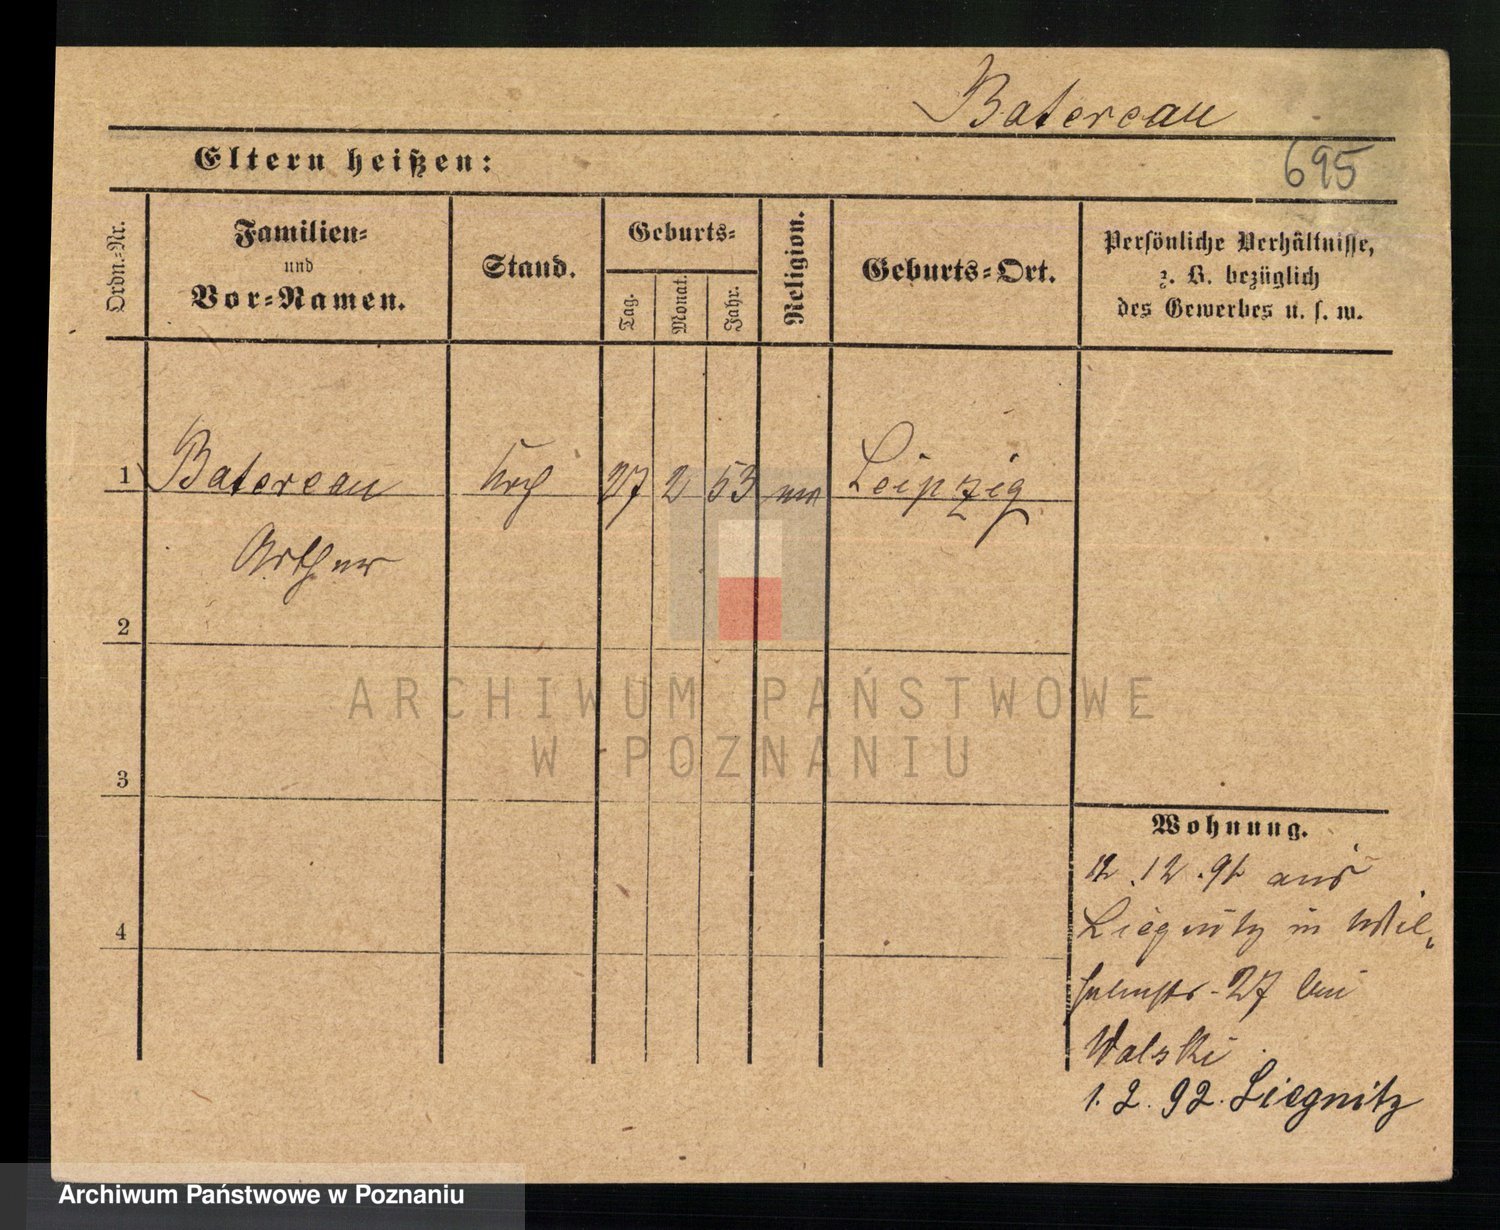 Batereau
Eltern heißen:
695
Ordn.-Nr.
Familien-
und
Vor-Namen.
Stand.
Geburts-
Tag.
Monat.
Jahr.
Religion.
Geburts-Ort.
Persönliche Verhältnisse,
z. B. bezüglich
des Gewerbes u. s. w.
1 Batereau 27 2 53 Leipzig
Arthur
2
3
4
ARCHIWUM PAŃSTWOWE
W POZNANIU
Wohnung.
12.12.91 aus
Liegnitz in Wil-
helmstr. 27 bei
Walski
1.2.92. Liegnitz
Archiwum Państwowe w Poznaniu